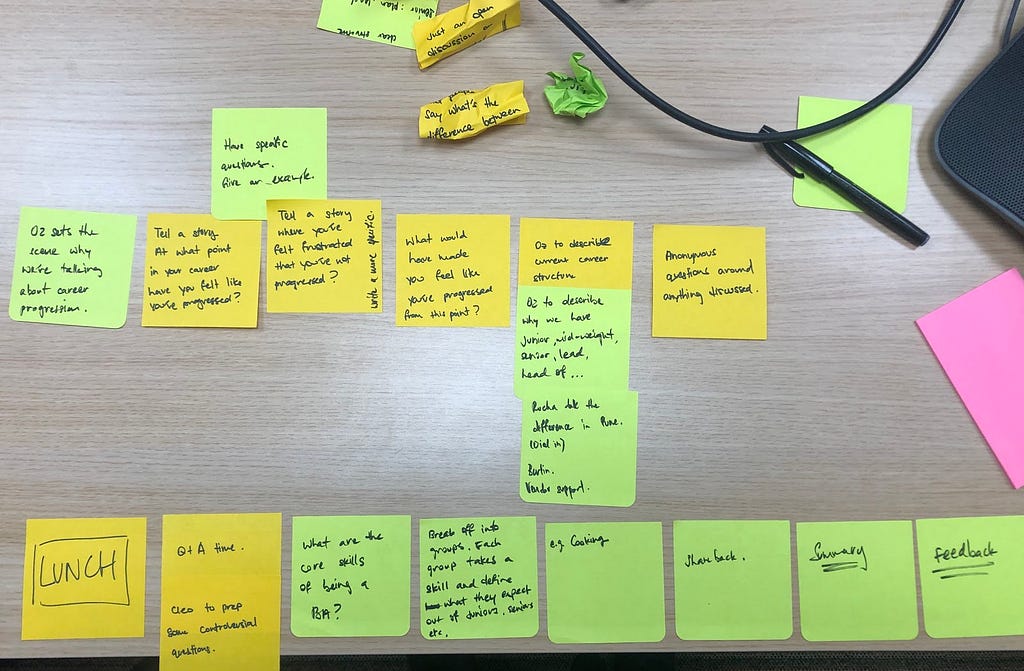 senior : plan
clear structure
Just an open
discussion or
say what's the
difference between
Have specific
questions.
Give an example.
Oz sets the
scene why
we're talking
about career
progression.
Tell a story
At what point
in your career
have you felt like
you've progressed?
Tell a story
where you've
felt frustrated
that you've not
progressed?
write a more specific.
What would
have made
you feel like
you've progressed
from this point?
Oz to describe
current career
structure
Oz to describe
why we have
Junior, mid-weight,
senior, lead,
head of ...
Rucha talk the
difference in Pune.
(Dial in)
Berlin.
Vendor support.
Anonymous
questions around
anything discussed.
LUNCH
Q+A time.
Cleo to prep
some controversial
questions.
What are the
core skills
of being a
BA?
Break off into
groups. Each
group takes a
skill and define
what they expect
out of Juniors, seniors
etc.
e.g Cooking
Share back.
Summary
feedback